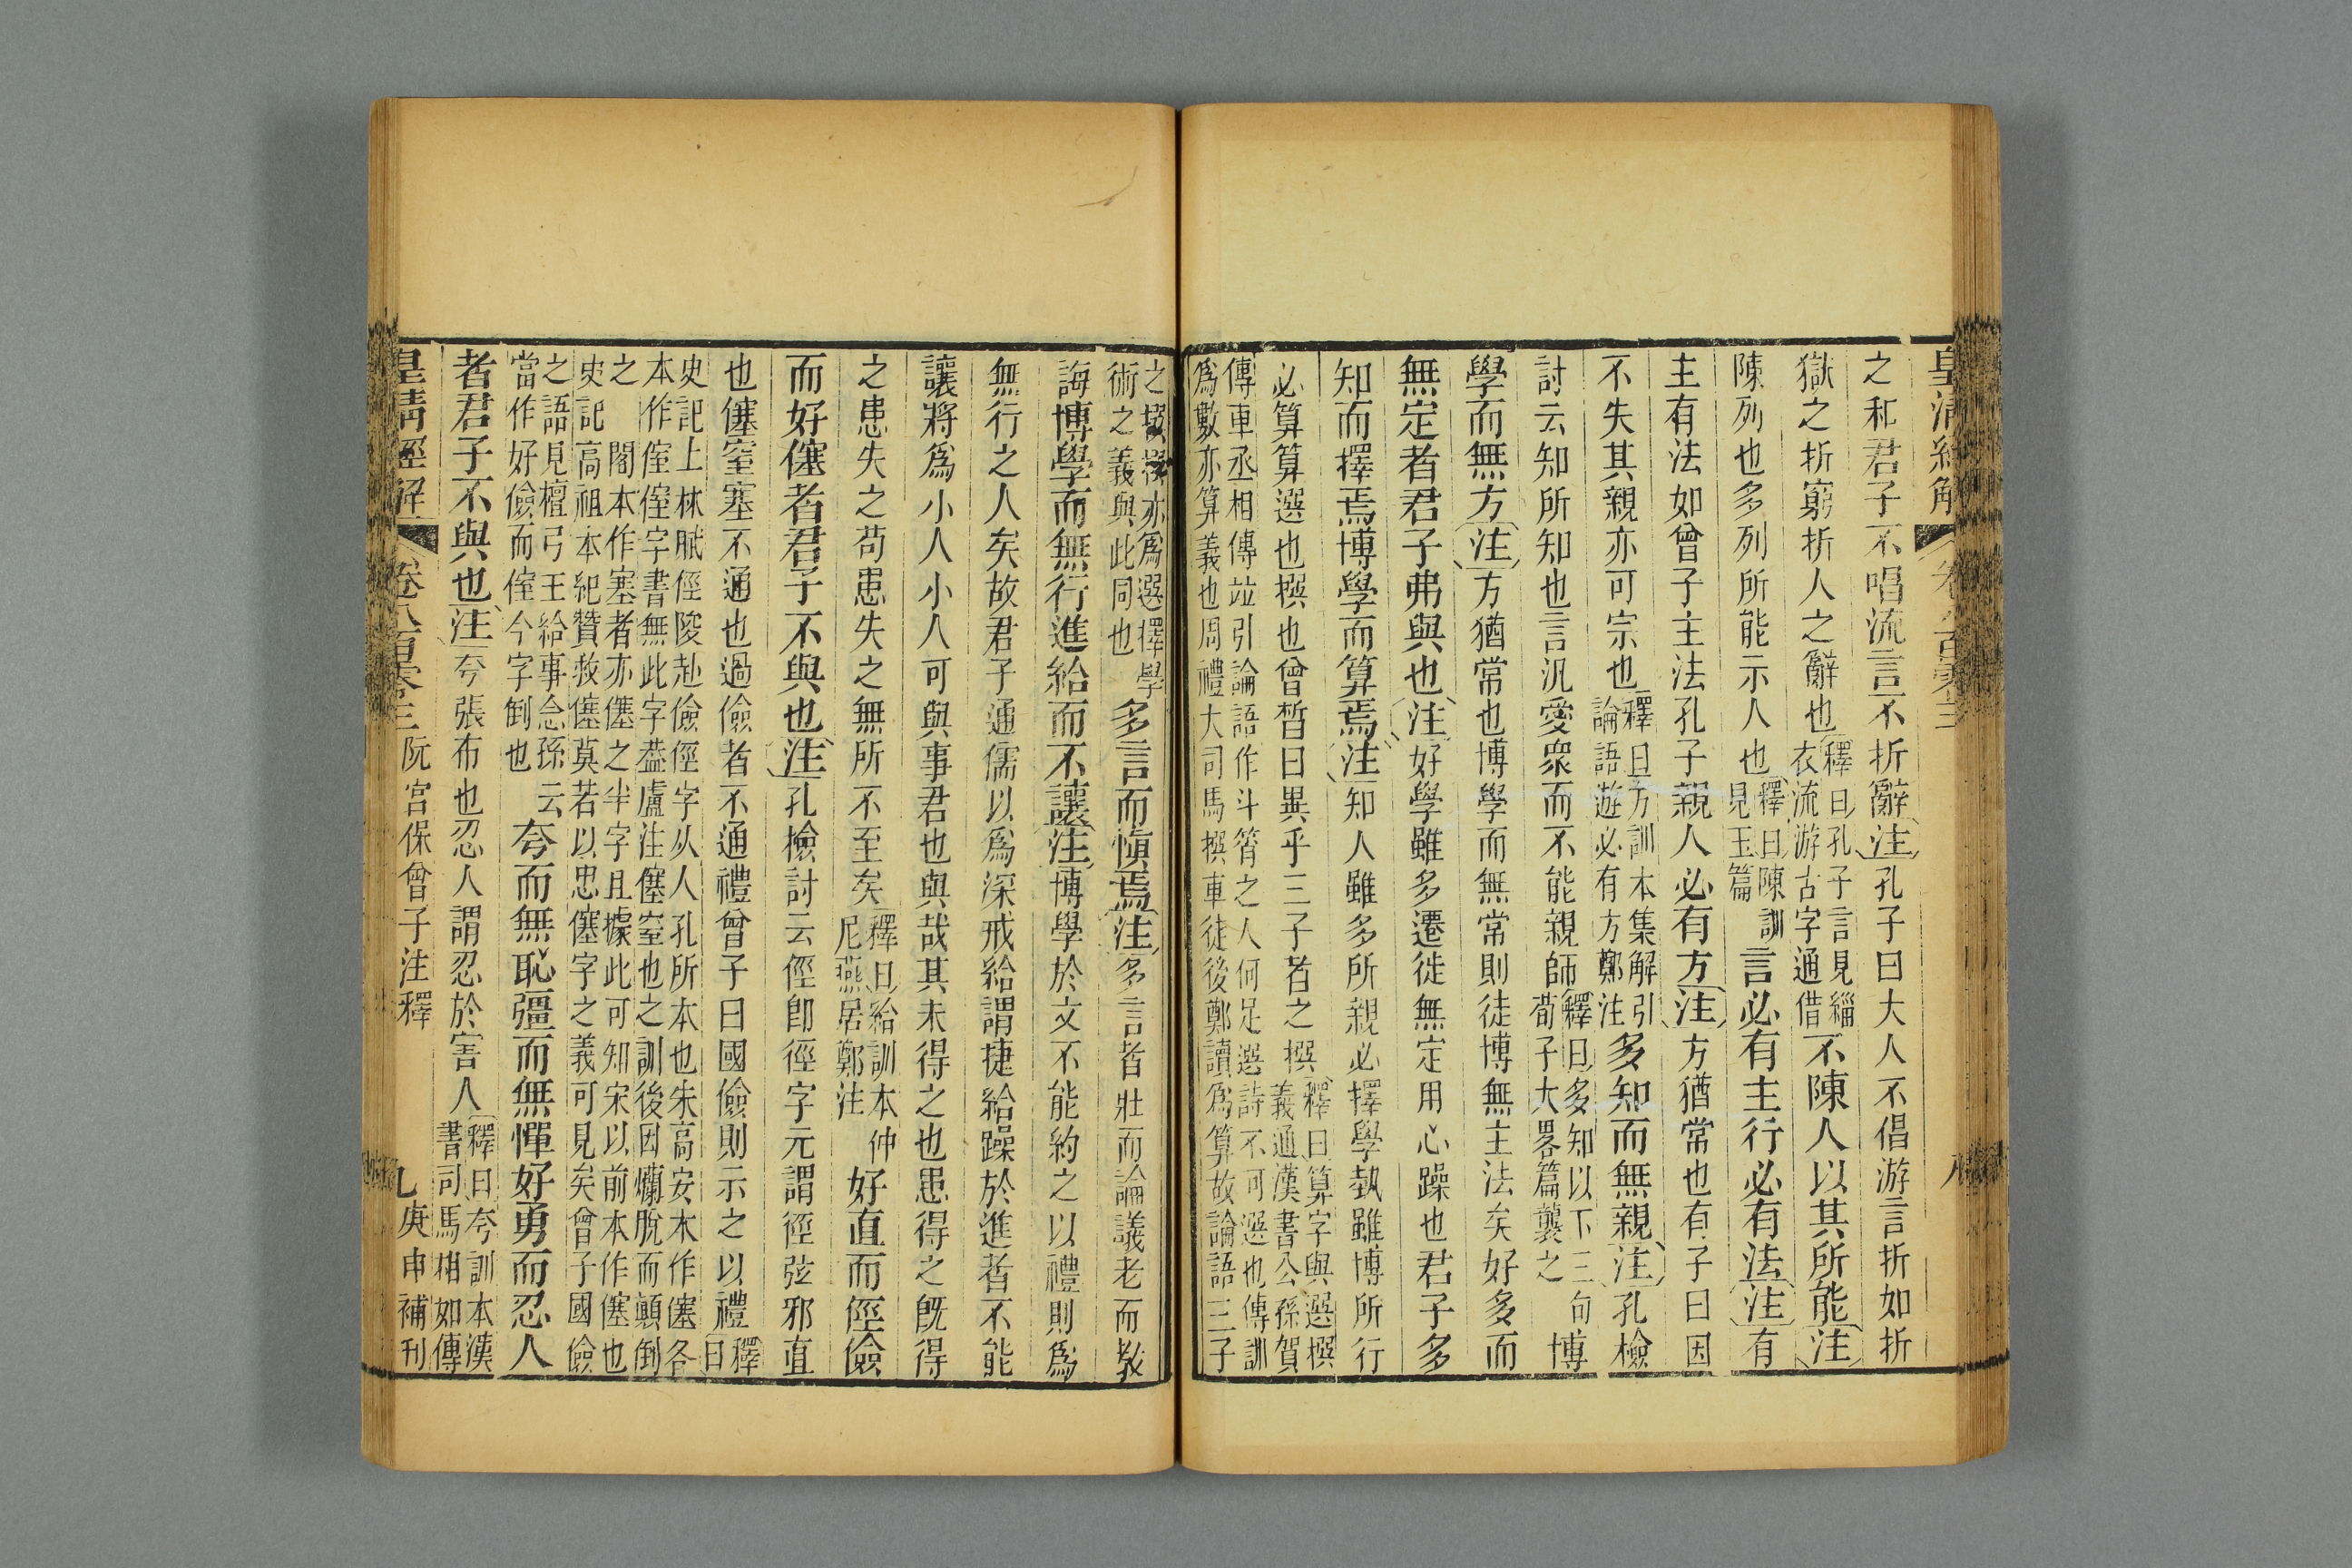 皇清經解 卷八百零三 八
之和君子不唱流言不折辭注孔子曰大人不倡游言折如折
獄之折窮折人之辭也釋曰孔子言見緇衣流游古字通借不陳人以其所能注
陳列也多列所能示人也釋曰陳訓見玉篇言必有主行必有法注有
主有法如曾子主法孔子親人必有方注方猶常也有子曰因
不失其親亦可宗也釋曰方訓本集解引論語遊必有方鄭注多知而無親注孔檢
討云知所知也言汎愛眾而不能親師釋曰多知以下三句荀子大畧篇襲之博
學而無方注方猶常也博學而無常則徒博無主法矣好多而
無定者君子弗與也注好學雖多遷徙無定用心躁也君子多
知而擇焉博學而算焉注知人雖多所親必擇學執雖博所行
必算算選也撰也曾晳曰異乎三子者之撰釋曰算字與選撰義通漢書公孫賀
傳車丞相傳竝引論語作斗筲之人何足選詩不可選也傳訓
爲數亦算義也周禮大司馬撰車徒後鄭讀爲算故論語三子
之撰釋亦爲選擇學
術之義與此同也多言而愼焉注多言者壯而論議老而教
誨博學而無行進給而不讓注博學於文不能約之以禮則爲
無行之人矣故君子通儒以爲深戒給謂捷給躁於進者不能
讓將爲小人小人可與事君也與哉其未得之也患得之旣得
之患失之苟患失之無所不至矣釋曰給訓本仲尼燕居鄭注好直而俓儉
而好僿者君子不與也注孔檢討云俓卽徑字元謂徑弦邪直
也僿窒塞不通也過儉者不通禮曾子曰國儉則示之以禮釋曰
史記上林賦俓陖赴儉俓字从人孔所本也朱高安本作僿各
本作侄侄字書無此字葢盧注僿窒也之訓後因爛脫而顛倒
之 閣本作塞者亦僿之半字且據此可知宋以前本作僿也
史記高祖本紀贊救僿莫若以忠僿字之義可見矣曾子國儉
之語見檀弓王給事念孫云
當作好儉而侄今字倒也夸而無恥彊而無憚好勇而忍人
者君子不與也注夸張布也忍人謂忍於害人釋曰夸訓本漢書司馬相如傳
皇清經解 卷八百零三 阮宮保曾子注釋 九 庚申補刊